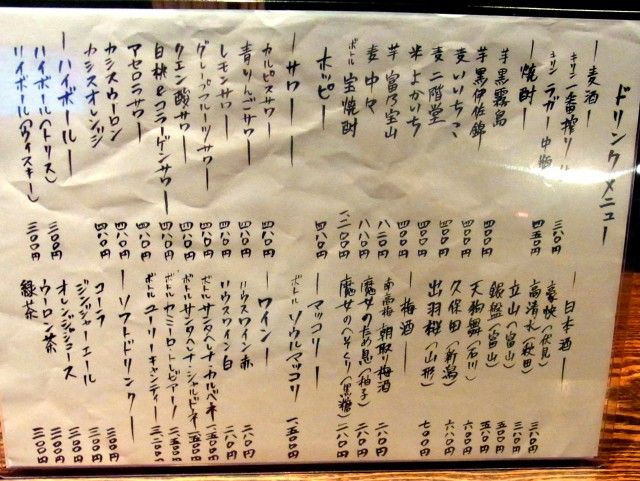 ドリンクメニュー
ー麦酒ー
キリン 一番搾り 三八〇円
キリン ラガー中瓶 四五〇円
ー焼酎ー
芋 黒霧島 四〇〇円
芋 黒伊佐錦 四〇〇円
麦 いいちこ 四〇〇円
麦 二階堂 四〇〇円
米 よかいち 四〇〇円
芋 富乃宝山 八二〇円
麦 中々 八八〇円
ボトル 宝焼酎 二〇〇円
ホッピー 四八〇円
ーサワーー
カルピスサワー 四八〇円
青りんごサワー 四八〇円
レモンサワー 四八〇円
グレープフルーツサワー 四八〇円
クエン酸サワー 四八〇円
白桃&コラーゲンサワー 四八〇円
アセロラサワー 四八〇円
カシスウーロン 四八〇円
カシスオレンジ 四八〇円
ーハイボールー
ハイボール(トリス) 三〇〇円
ハイボール(アイスキー) 三〇〇円
ー日本酒ー
豪快(伏見) 三八〇円
高清水(秋田) 三八〇円
立山(富山) 五五〇円
銀盤(富山) 五〇〇円
天狗舞(石川) 六〇〇円
久保田(新潟) 六八〇円
出羽桜(山形) 七〇〇円
ー梅酒ー
南高梅 朝取り梅酒 二八〇円
魔女のため息(柚子) 二八〇円
魔女のへそくり(黒糖) 二八〇円
ーマッコリー
ボトル ソウルマッコリ 一、五〇〇円
ーワインー
ハウスワイン 赤 二八〇円
ハウスワイン 白 二八〇円
ボトル サンタヘレナ・カルベネ 一五〇〇円
ボトル サンタヘレナ・シャルドネ 一五〇〇円
ボトル カミーロ・トレビアーノ 二、五〇〇円
ボトル ユーリ・キャンティー 三、二〇〇円
ーソフトドリンクー
コーラ 三〇〇円
ジンジャーエール 三〇〇円
オレンジジュース 三〇〇円
ウーロン茶 三〇〇円
緑茶 三〇〇円